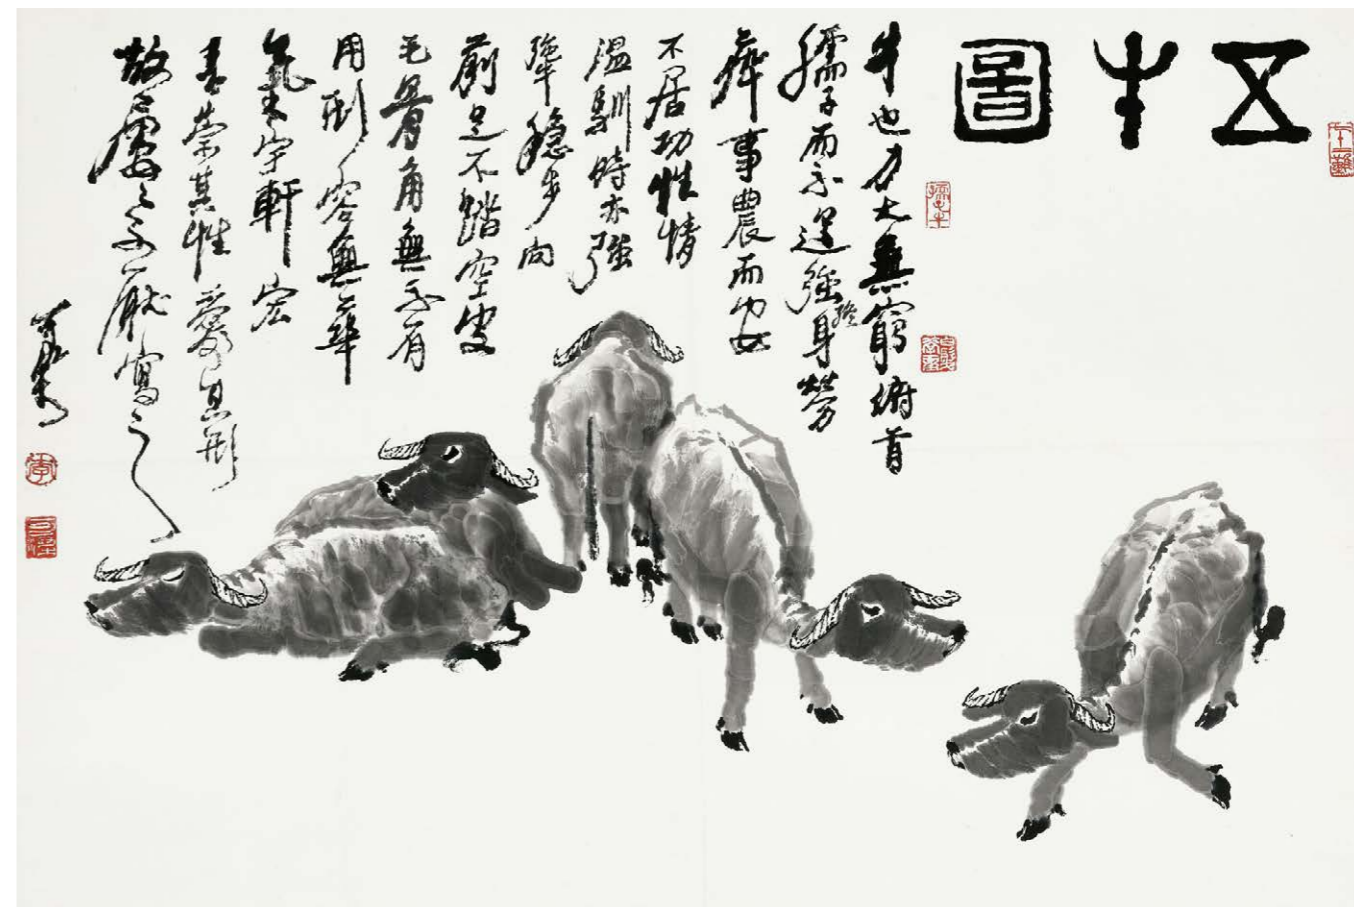 五牛圖
牛也力大無窮俯首
孺子而不逞強終身勞
瘁事農而安
不居功性情
溫馴時亦強
犟穩步向
前足不踏空皮
毛骨角無不有
用形容無華
氣宇軒宏
吾崇其性愛其形
故屢屢不厭寫之
可染
李
可染
孺子牛